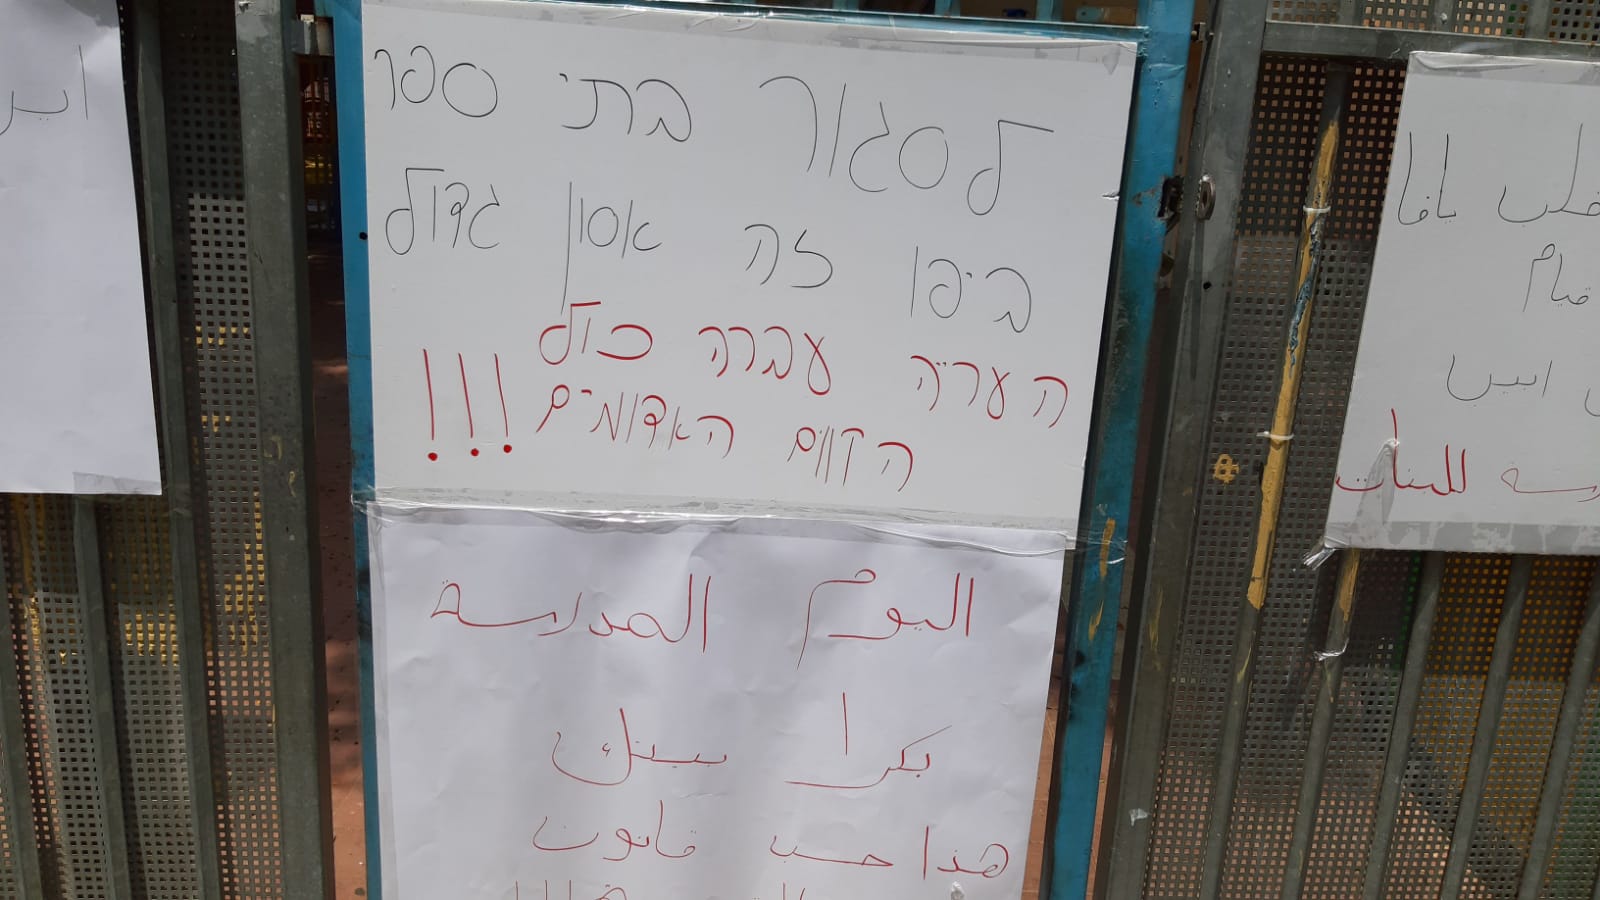 לסגור בתי ספר
ביפו זה אסון גדול
העריה עברה כול
הקווים האדומים !!!
اليوم المدرسة
بكرا بيتك
هذا حسب قانون
قلب يافا
قيام
للبنات